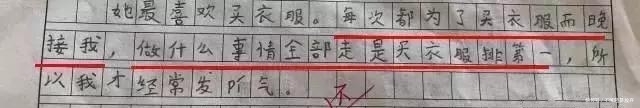 她最喜欢买衣服。每次都为了买衣服而晚
接我，做什么事情全部走是买衣服排第一，所
以我才经常发吖气。
不